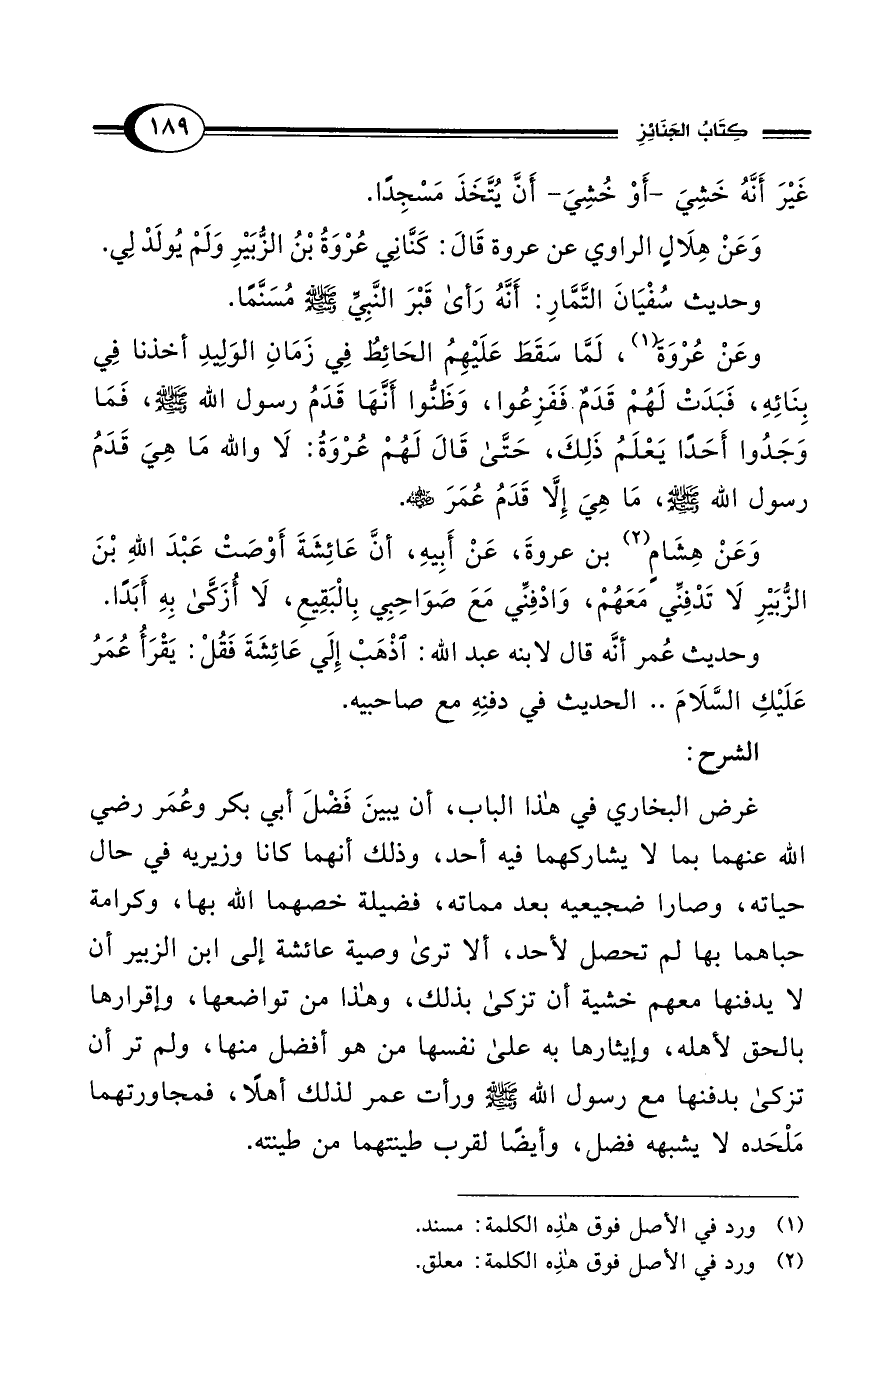 كِتَابُ الجَنَائِزِ ١٨٩
غَيْرَ أَنَّهُ خَشِيَ -أَوْ خُشِيَ- أَنَّ يُتَّخَذَ مَسْجِدًا.
وَعَنْ هِلَالٍ الراوي عن عروة قَالَ: كَنَّانِي عُرْوَةُ بْنُ الزُّبَيْرِ وَلَمْ يُولَدْ لِي.
وحديث سُفْيَانَ التَّمَّارِ: أَنَّهُ رَأىٰ قَبْرَ النَّبِيِّ ﷺ مُسَنَّمًا.
وعَنْ عُرْوَةَ(١)، لَمَّا سَقَطَ عَلَيْهِمُ الحَائِطُ فِي زَمَانِ الوَلِيدِ أخذنا فِي
بِنَائِهِ، فَبَدَتْ لَهُمْ قَدَمٌ فَفَزِعُوا، وَظَنُّوا أَنَّهَا قَدَمُ رسول الله ﷺ، فَمَا
وَجَدُوا أَحَدًا يَعْلَمُ ذَلِكَ، حَتَّىٰ قَالَ لَهُمْ عُرْوَةُ: لَا والله مَا هِيَ قَدَمُ
رسول الله ﷺ، مَا هِيَ إِلَّا قَدَمُ عُمَرَ رضي الله عنه.
وَعَنْ هِشَامٍ(٢) بن عروةَ، عَنْ أَبِيهِ، أنَّ عَائِشَةَ أَوْصَتْ عَبْدَ اللهِ بْنَ
الزُّبَيْرِ لَا تَدْفِنِّي مَعَهُمْ، وَادْفِنِّي مَعَ صَوَاحِبِي بِالْبَقِيعِ، لَا أُزَكَّىٰ بِهِ أَبَدًا.
وحديث عُمر أنَّه قال لابنه عبد الله: ٱذْهَبْ إِلَي عَائِشَةَ فَقُلْ: يَقْرَأُ عُمَرُ
عَلَيْكِ السَّلَامَ .. الحديث في دفنِهِ مع صاحبيه.
الشرح:
غرض البخاري في هذا الباب، أن يبينَ فَضْلَ أبي بكر وعُمَر رضي
الله عنهما بما لا يشاركهما فيه أحد، وذلك أنهما كانا وزيريه في حال
حياته، وصارا ضجيعيه بعد مماته، فضيلة خصهما الله بها، وكرامة
حباهما بها لم تحصل لأحد، ألا ترىٰ وصية عائشة إلى ابن الزبير أن
لا يدفنها معهم خشية أن تزكىٰ بذلك، وهٰذا من تواضعها، وإقرارها
بالحق لأهله، وإيثارها به علىٰ نفسها من هو أفضل منها، ولم تر أن
تزكىٰ بدفنها مع رسول الله ﷺ ورأت عمر لذلك أهلًا، فمجاورتهما
مَلْحَده لا يشبهه فضل، وأيضًا لقرب طينتهما من طينته.
(١) ورد في الأصل فوق هٰذِه الكلمة: مسند.
(٢) ورد في الأصل فوق هٰذِه الكلمة: معلق.